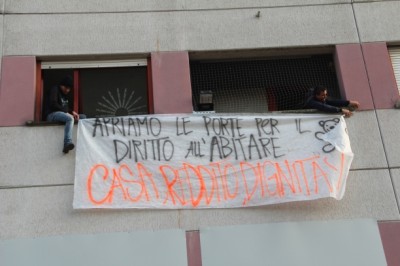 APRIAMO LE PORTE PER IL
DIRITTO ALL'ABITARE
CASA REDDITO DIGNITA'